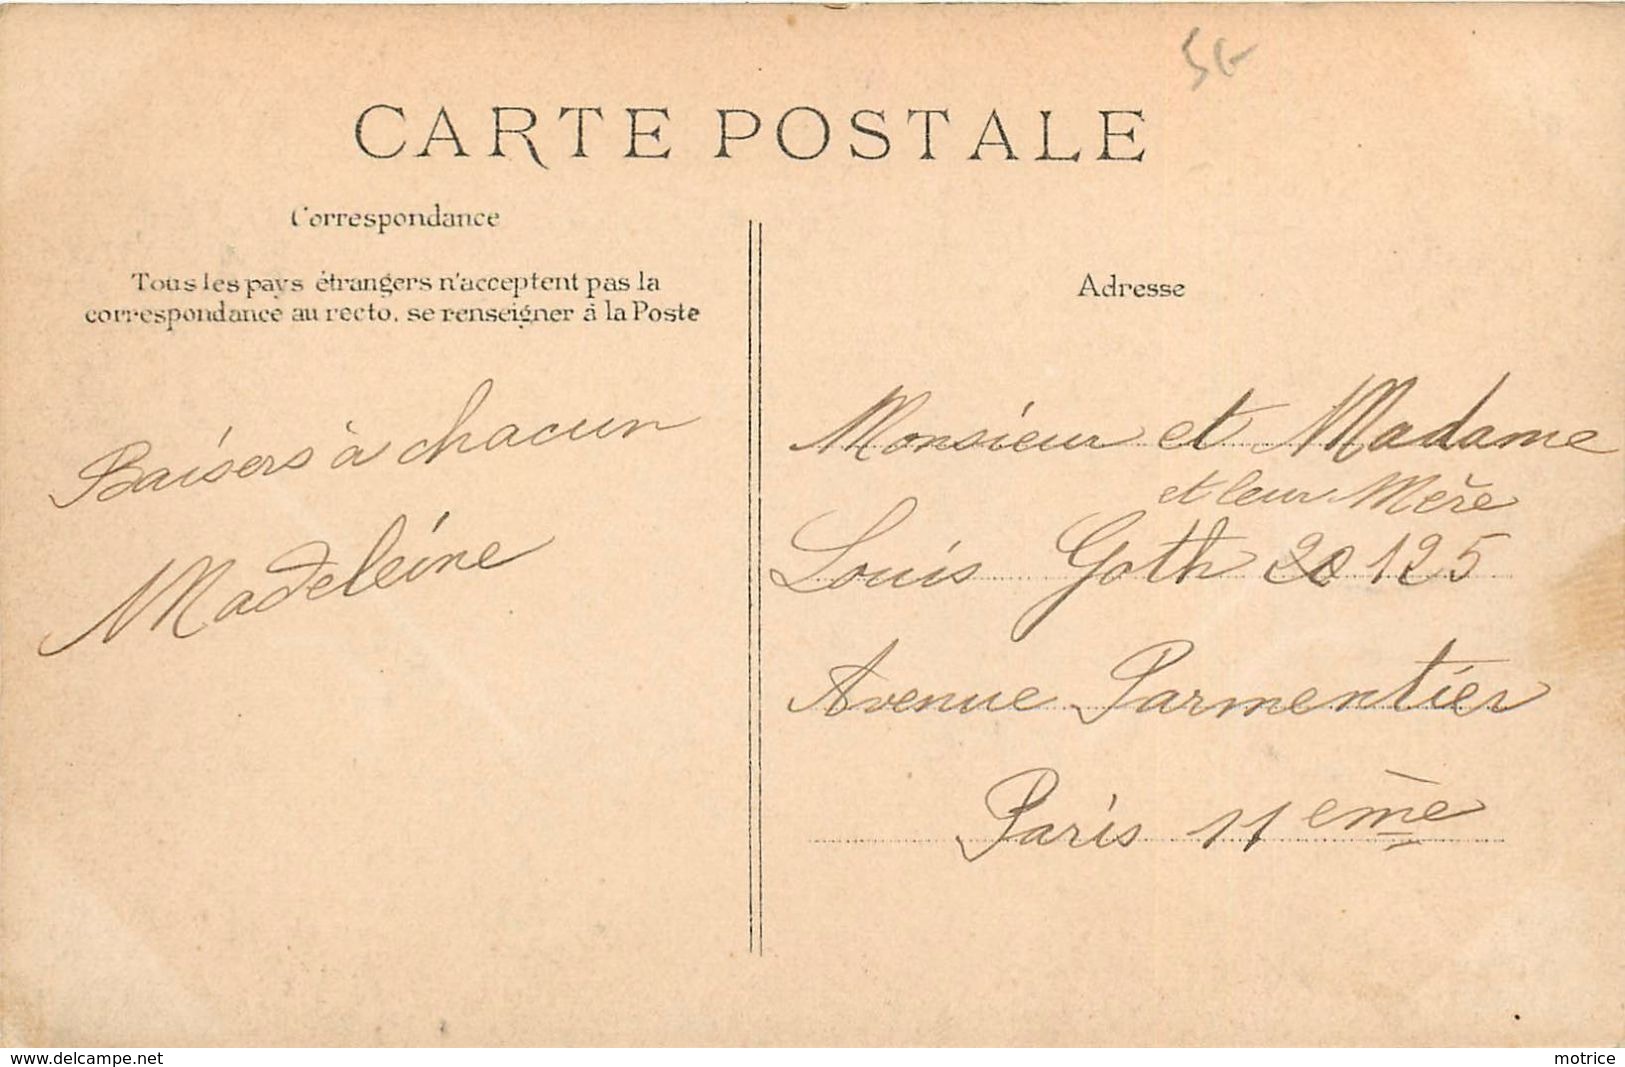 CARTE POSTALE
Correspondance
Tous les pays étrangers n'acceptent pas la
correspondance au recto, se renseigner à la Poste
Baisers à chacun
Madeleine
Adresse
Monsieur et Madame
et leur Mère
Louis Goth 125
Avenue Parmentier
Paris 11ème
www.delcampe.net
motrice